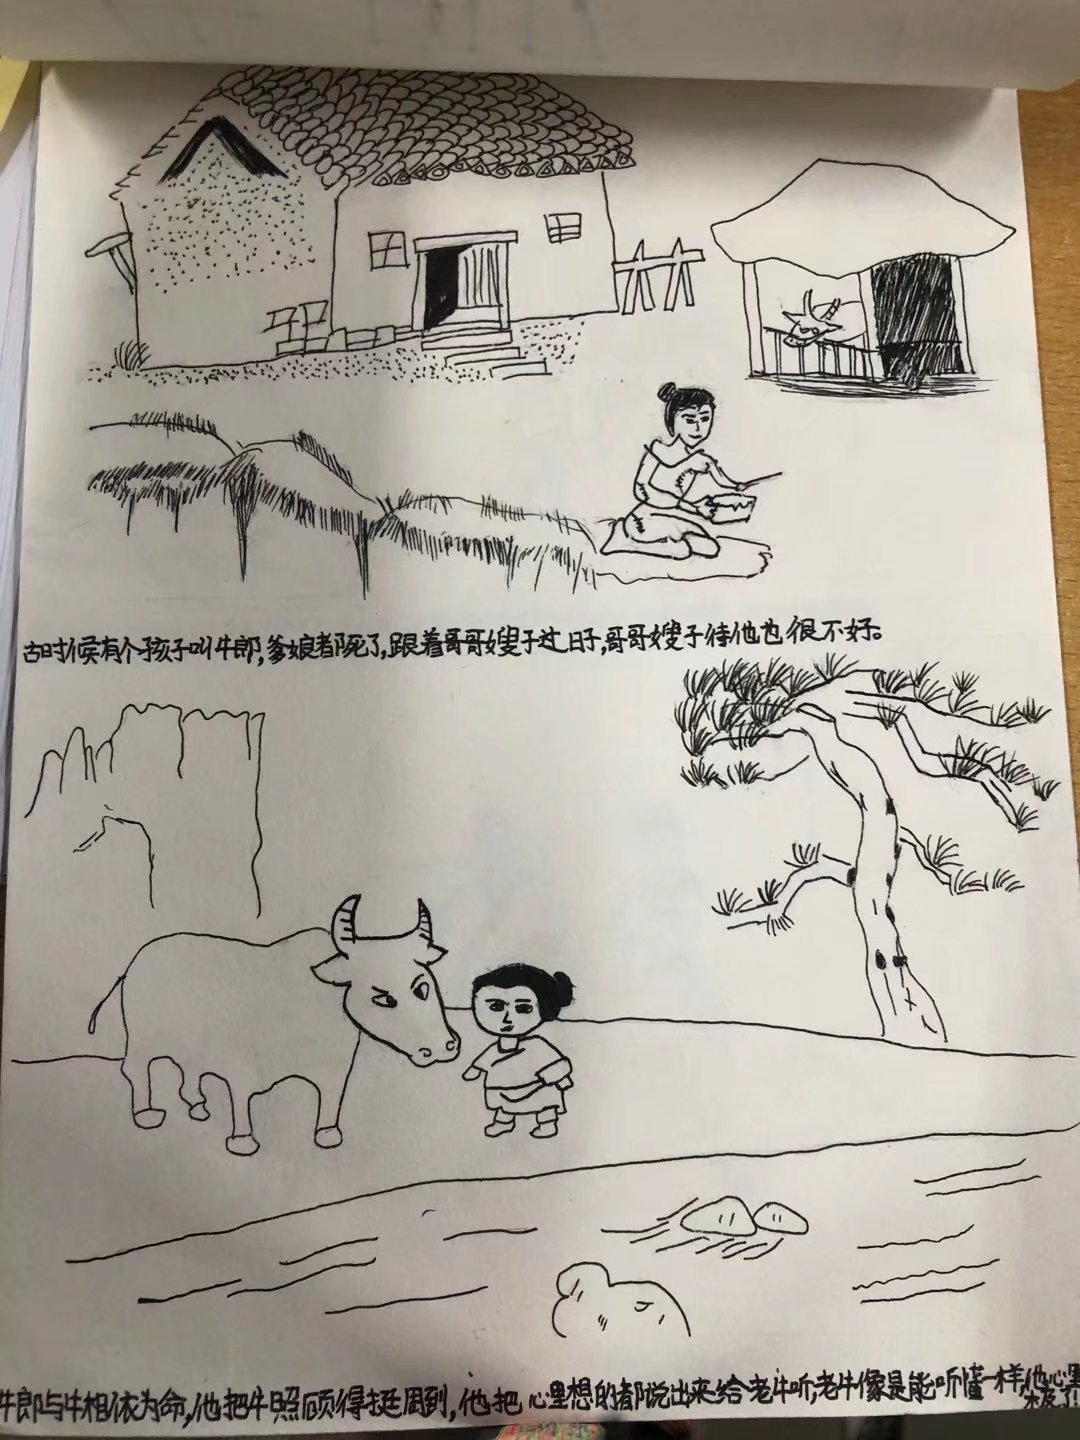 古时候有个孩子叫牛郎,爹娘都死了,跟着哥哥嫂子过日子,哥哥嫂子待他也很不好。
牛郎与牛相依为命,他把牛照顾得挺周到,他把心里想的都说出来给老牛听,老牛像是能听懂一样,他心里